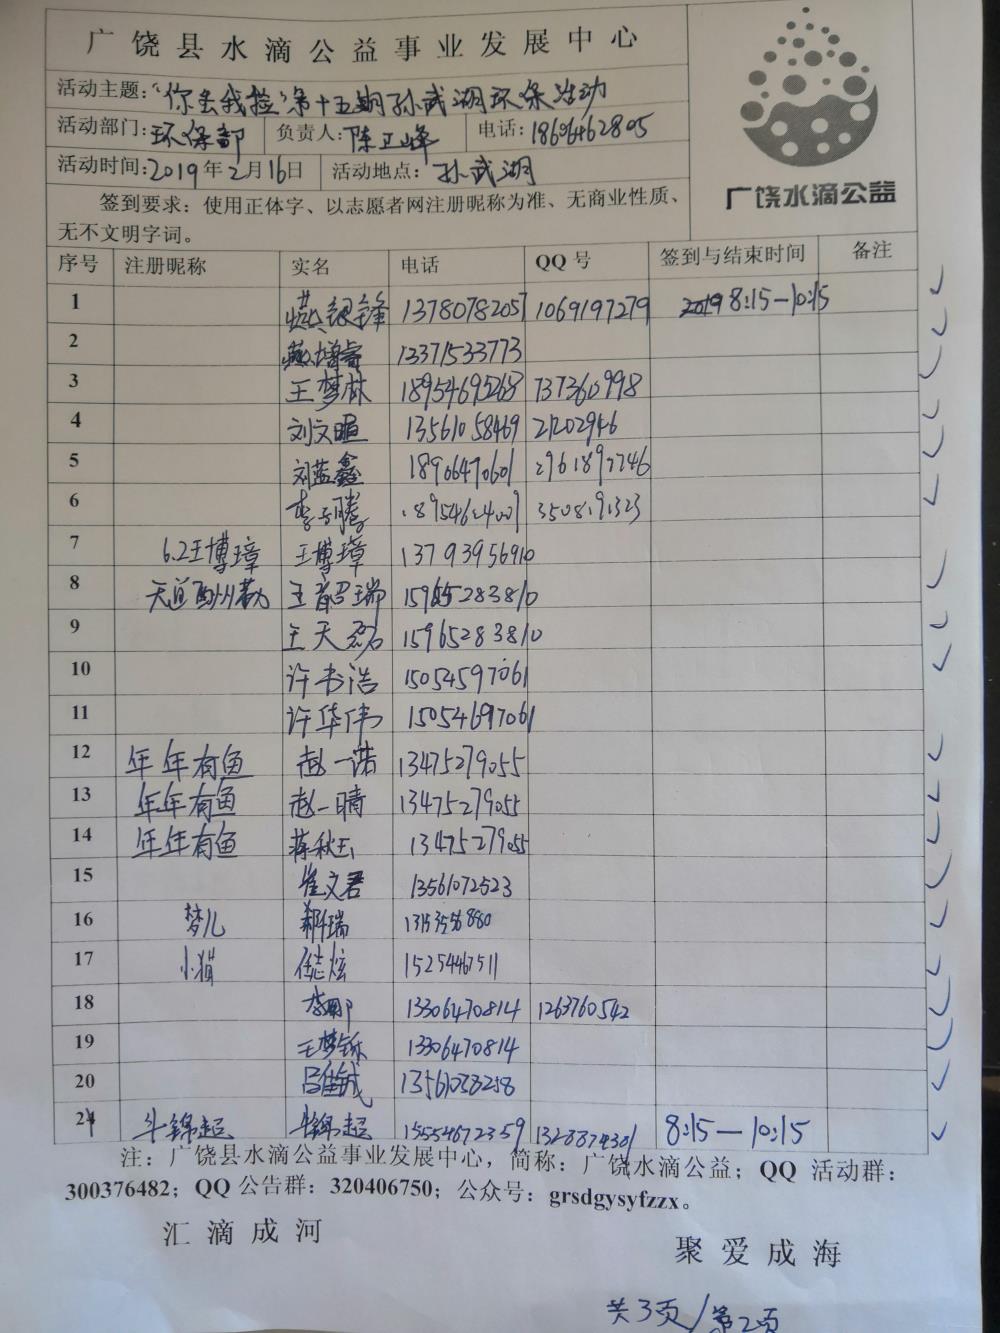 广饶县水滴公益事业发展中心
活动主题：“你丢我捡”第十五期孙武湖环保活动
活动部门：环保部 负责人：陈卫峰 电话：18606462805
活动时间：2019年2月16日 活动地点：孙武湖
签到要求：使用正体字、以志愿者网注册昵称为准、无商业性质、
无不文明字词。
广饶水滴公益
序号 注册昵称 实名 电话 QQ号 签到与结束时间 备注
1 燕银锋 13780782057 1069197279 2019 8:15—10:15
2 燕博睿 12371533773
3 王梦林 18954695268 737360998
4 刘文暄 13561058469 21202946
5 刘蓝鑫 18906470601
6 李子腾
7 6.2王博璋 王博璋 13793956910
8 王韶瑞 15965283810
9 王天磊 15965283810
10 许书浩 15054597061
11 许华伟 15054697061
12 年年有鱼 赵一诺 13475279055
13 年年有鱼 赵一晴 13475279055
14 年年有鱼 蒋秋玉 13475279055
15 崔文君 13561072523
16 梦儿 郑瑞 13153556880
17 小猫 15254467511
18 李娜 13306470814 1263760542
19 王梦钰 13306470814
20 13561038258
21 牛锦超 牛锦超 15554672359 1328874301 8:15—10:15
注：广饶县水滴公益事业发展中心，简称：广饶水滴公益；QQ 活动群：
300376482；QQ 公告群：320406750；公众号：grsdgysyfzzx。
汇滴成河
聚爱成海
共3页/第2页